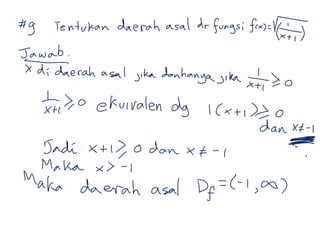 #9 Tentukan daerah asal dr fungsi f(x)=√(1/(x+1))
Jawab.
x di daerah asal jika dan hanya jika 1/(x+1) ⩾ 0
1/(x+1) ⩾ 0 ekuivalen dg 1(x+1) ⩾ 0
dan x≠-1
Jadi x+1 ⩾ 0 dan x ≠ -1
Maka x > -1
Maka daerah asal D_f = (-1, ∞)